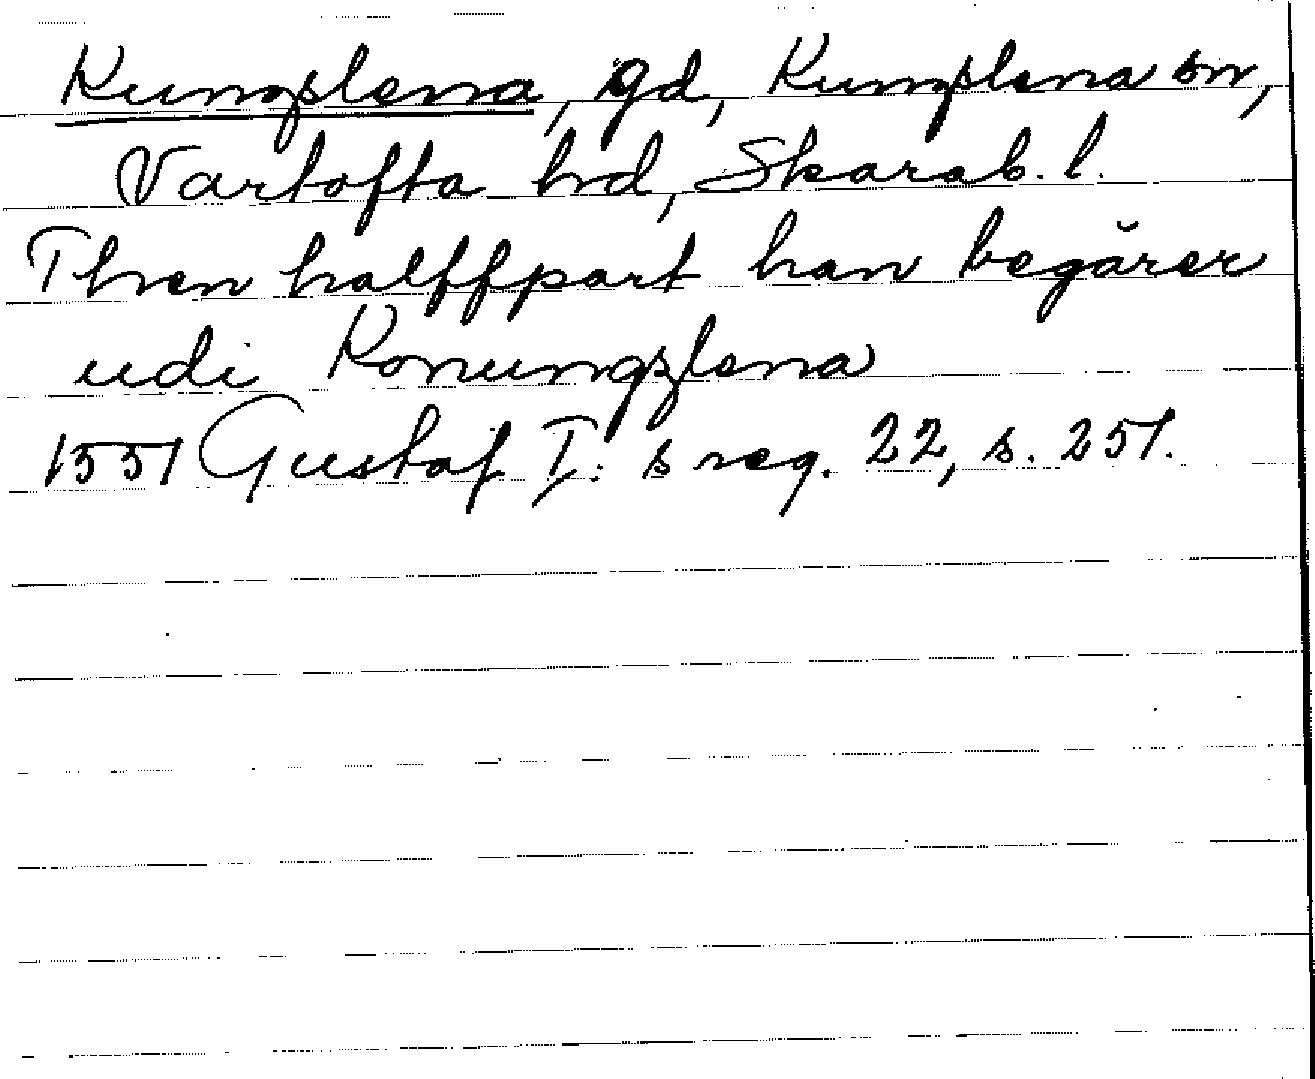 Kungslena, gd, Kungslena sn,
Vartofta hd, Skarab. l.
Then halffpart han begärer
udi Konungzlena
1551 Gustaf I:s reg. 22, s. 251.